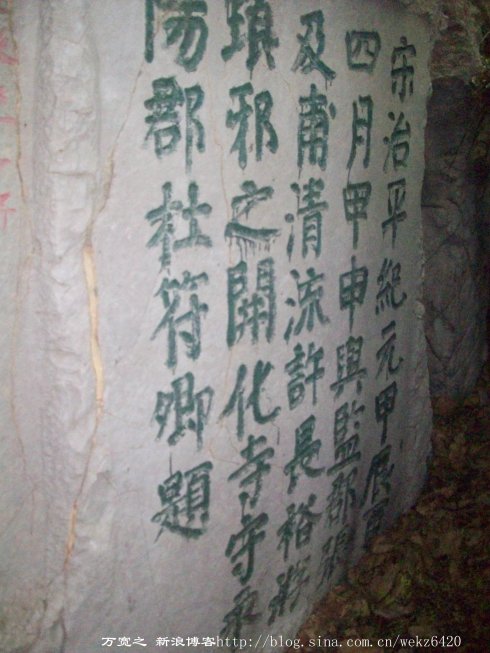 宋治平紀元甲辰
四月甲申與監郡張
及甫清流許長裕游
邪之開化寺守
陽郡杜符卿題
万宽之 新浪博客http://blog.sina.com.cn/wekz6420